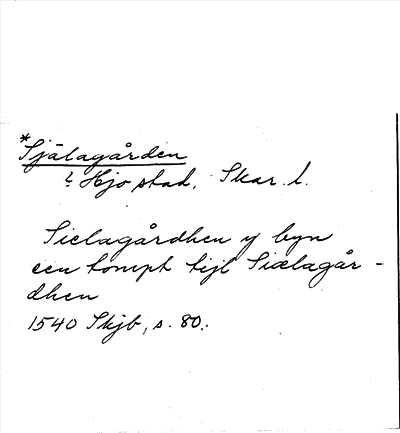 *Själagården
i Hjo stad, Skar. l.
Sielagårdhen y byn
een tompt tijl Siælagår-
dhen
1540 Skjb, s. 80.